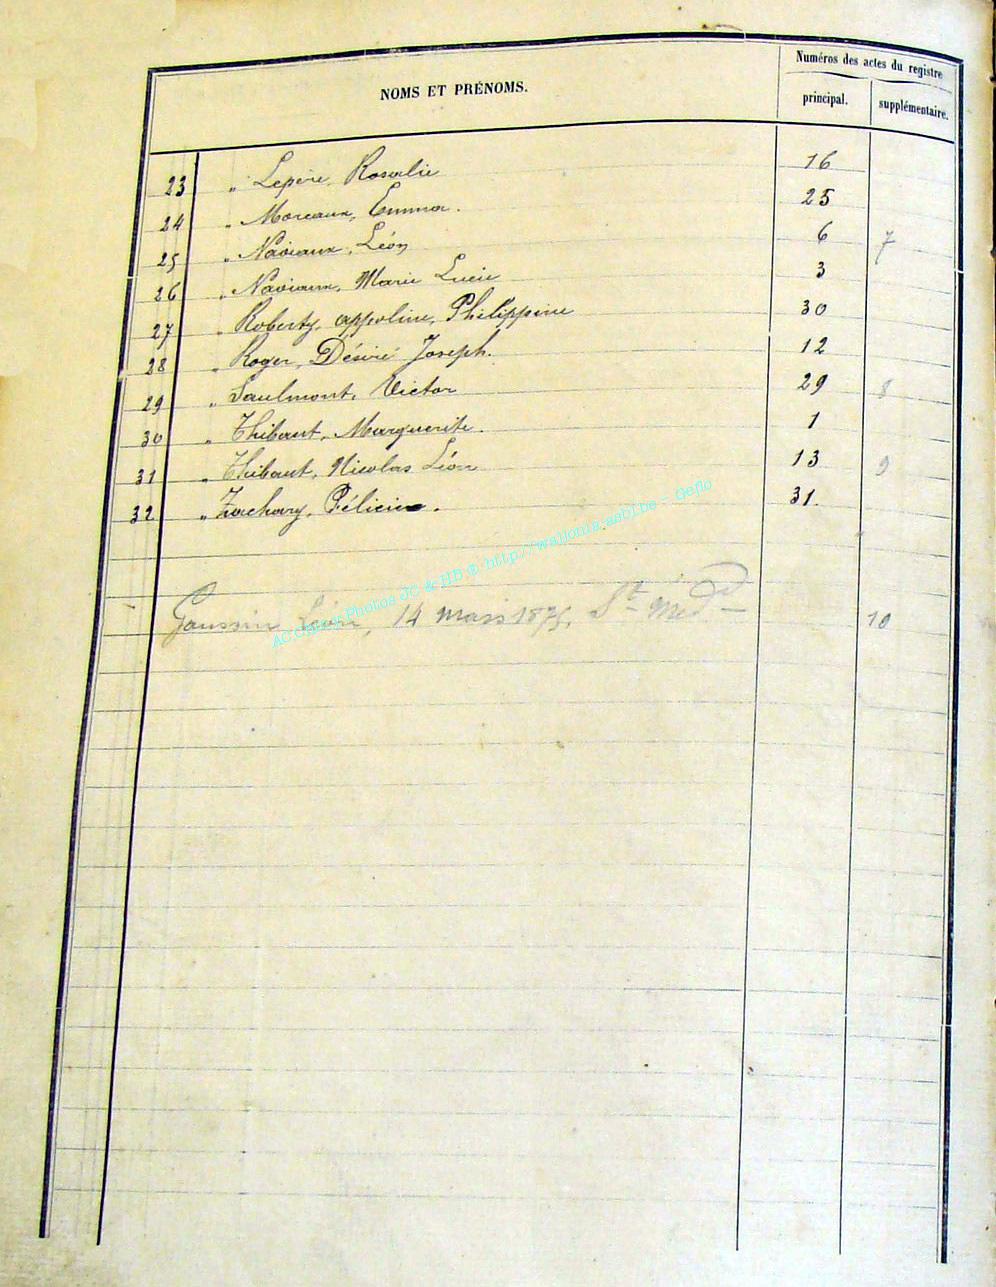 NOMS ET PRÉNOMS.
Numéros des actes du registre
principal.
supplémentaire.
23 " Lepère, Rosalie 16
24 " Moreaux, Emma. 25
25 " Naviaux, Léon 6 7
26 " Naviaux, Marie Lucie 3
27 " Roberty, appoline, Philippine 30
28 " Roger, Désiré Joseph. 12
29 " Saulmont, Victor 29 8
30 " Thibaut, Marguerite. 1
31 " Thibaut, Nicolas Léon 13 9
32 " Zachary, Félicie. 31.
Goussin Léon, 14 mars 1875, St Med 10
ACC Gdry Photos JC & HB © http://wallonia.asbl.be - Geflo